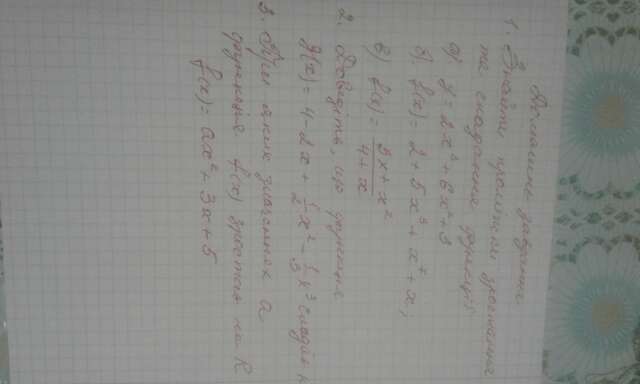 Домашнє завдання
1. Знайти проміжки зростання
та спадання функції
а) y = 2x³ + 6x² + 3
б) f(x) = 2 + 5x³ + x⁴ + x;
в) f(x) = 3x + x² / 4 + x
2. Доведіть, що функція
g(x) = 4 - 2x + 1/2 x² - 1/3 x³ спадна
3. При яких значеннях a
функція f(x) зростає на R
f(x) = ax² + 3x + 5